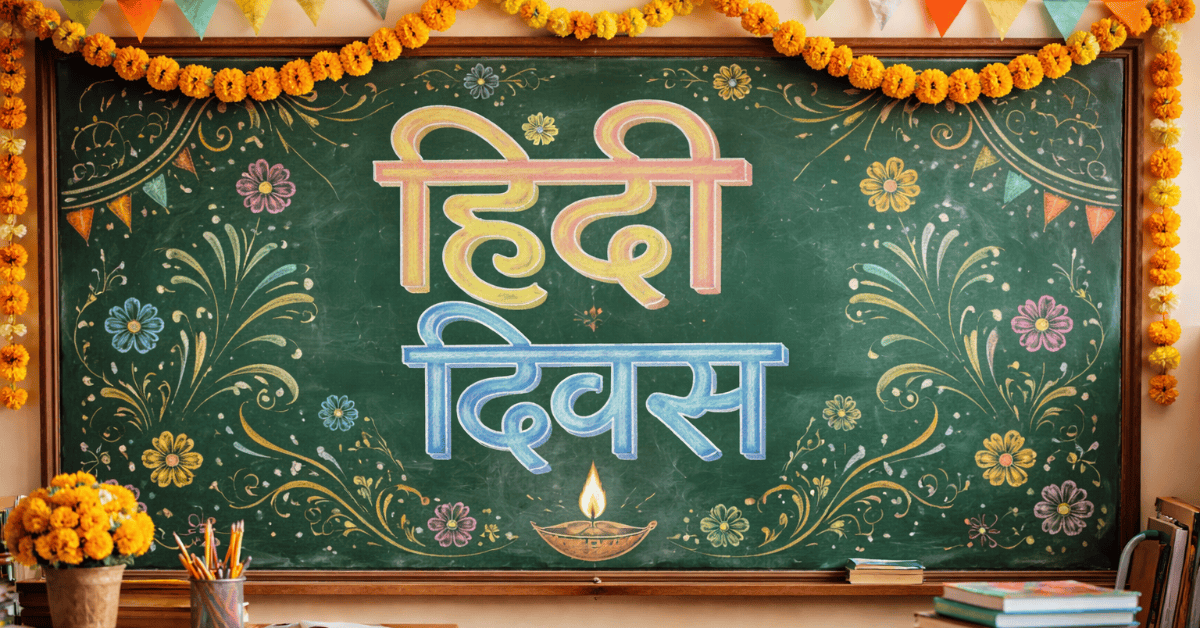 हिंदी
दिवस